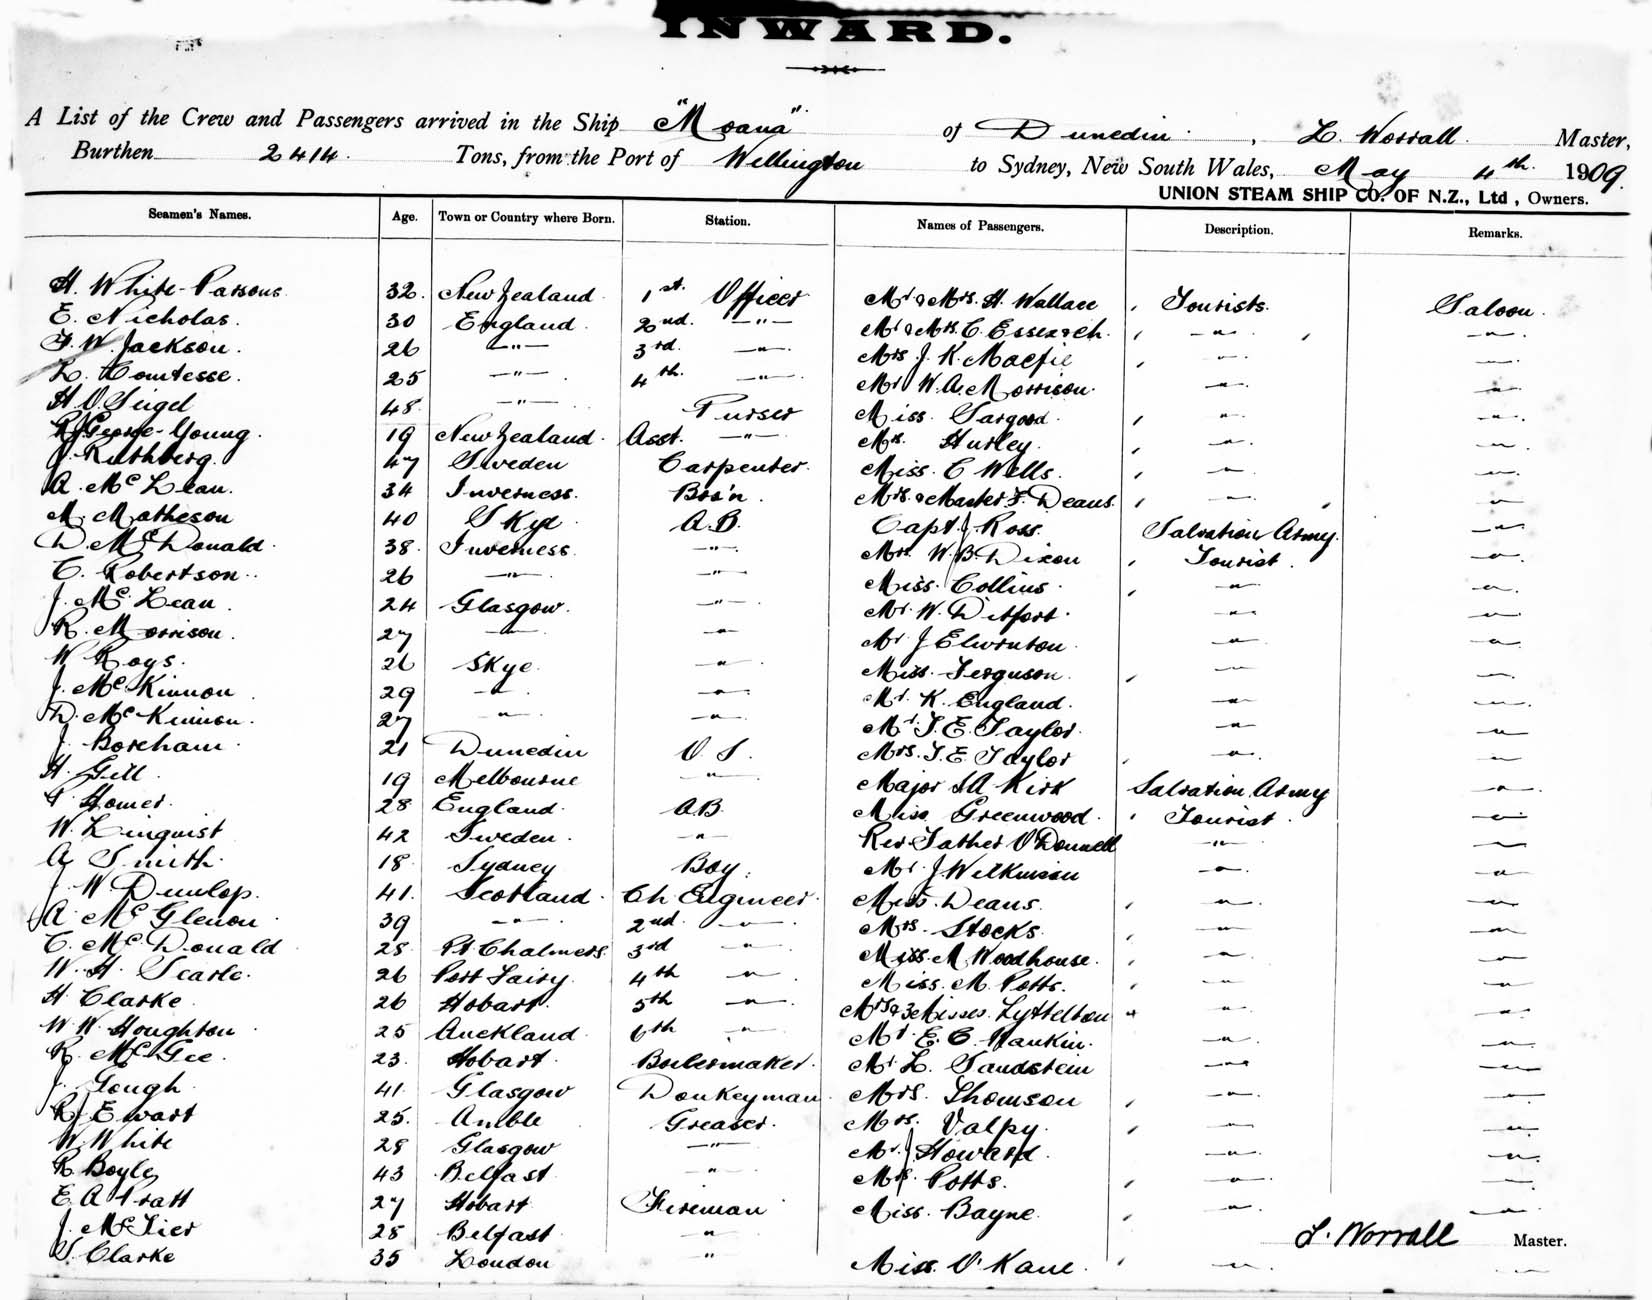 INWARD.
A List of the Crew and Passengers arrived in the Ship "Moana" of Dunedin, L. Worrall Master,
Burthen 2414 Tons, from the Port of Wellington to Sydney, New South Wales, May 4th 1909.
UNION STEAM SHIP CO. OF N.Z., Ltd, Owners.
Seamen's Names. Age. Town or Country where Born. Station. Names of Passengers. Description. Remarks.
H. White-Parsons 32. New Zealand 1st. Officer Mr & Mrs. H. Wallace , Tourists. Saloon.
E. Nicholas. 30 England 2nd. -"- Mr & Mrs. C. Essex & ch. , -"- , -"-
F. W. Jackson. 26 -"- 3rd. -"- Mrs J. K. Macfie , -"- -"-
L. Comtesse. 25 -"- 4th. -"- Mr W. A. Morrison. -"- -"-
H. O. Seigel 48. -"- Purser Miss. Sargood. , -"- -"-
George-Young. 19 New Zealand. Asst. -"- Mrs. Hurley. , -"- -"-
J. Ruthberg. 47 Sweden Carpenter. Miss. C Wells. , -"- -"-
A. McLean. 34 Inverness. Bos'n. Mrs. & Master F. Deans. , -"- , -"-
M. Matheson 40 Skye A.B. Capt. J. Ross. Salvation Army. -"-
D. McDonald. 38. Inverness. -"- Mrs. W. B. Dixon , Tourist. -"-
C. Robertson.. 26 -"- -"- Miss. Collins. , -"- -"-
J. McLean. 24 Glasgow. -"- Mr. W. Ditfort. -"- -"-
R. Morrison. 27 -"- -"- Mr J -"- -"-
W Roys. 26 Skye. -"- Miss. Ferguson. , -"- -"-
J. McKinnon. 29 -"- -"- Mr. K. England. -"- -"-
D. McKinnon. 27 -"- -"- Mr. T. E. Taylor. -"- -"-
J. Boreham. 21 Dunedin O. S. Mrs. T. E. Taylor , -"- -"-
H. Gill. 19 Melbourne -"- Major A Kirk Salvation Army -"-
Homer. 28 England. A.B. Miss Greenwood. , Tourist. -"-
W. Linquist 42 Sweden. -"- Rev Father O'Donnell -"- -"-
A Smith. 18 Sydney Boy. Mr J Wilkinson -"- -"-
J. W. Dunlop. 41. Scotland. Ch. Engineer. Miss. Deans. , -"- -"-
A. McGlenon 39 -"- 2nd. -"- Mrs. Stocks. , -"- -"-
C. McDonald 28 Pt. Chalmers. 3rd -"- Miss. M. Woodhouse. , -"- -"-
W. H. Searle. 26 Port Fairy 4th -"- Miss. M. Potts. , -"- -"-
H. Clarke. 26 Hobart. 5th -"- Mrs & 3 Misses. Lyttelton " -"- -"-
W. W. Houghton 25 Auckland. 6th -"- Mr. E. C. Rankin. -"- -"-
R. McGee. 23. Hobart. Boilermaker. Mr L. Sandstein -"- -"-
J. Gough 41. Glasgow Donkeyman. Mrs. Thomson , -"- -"-
R. Ewart 25. Amble Greaser. Mrs. Valpy. , -"- -"-
W. White 28 Glasgow -"- Mr. J Howard. -"- -"-
R Boyle 43 Belfast. -"- Mrs. Potts. , -"- -"-
E. A Pratt 27 Hobart Fireman Miss. Bayne. , -"- -"-
J. 28 Belfast -"- L. Worrall Master.
S. Clarke 35 London -"- Miss. O'Kane. , -"- -"-